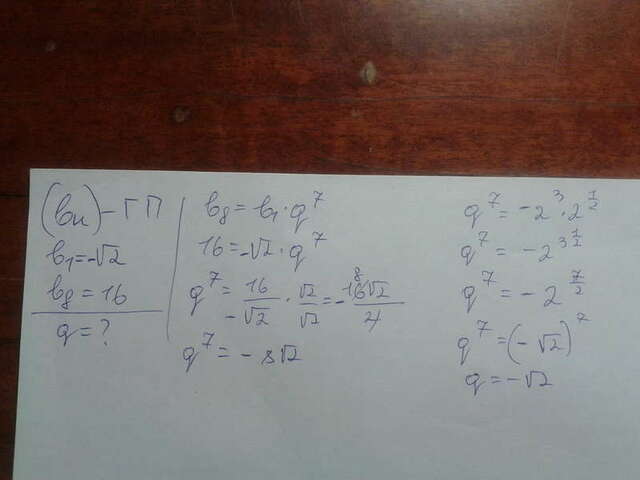 (bn) – ГП
b₁ = -√2
b₈ = 16
q = ?
b₈ = b₁ · q⁷
16 = -√2 · q⁷
q⁷ = 16/-√2 · √2/√2 = -16√2/2 8
q⁷ = - 8√2
q⁷ = -2³ · 2^(1/2)
q⁷ = -2^(3 1/2)
q⁷ = -2^(7/2)
q⁷ = (-√2)⁷
q = -√2